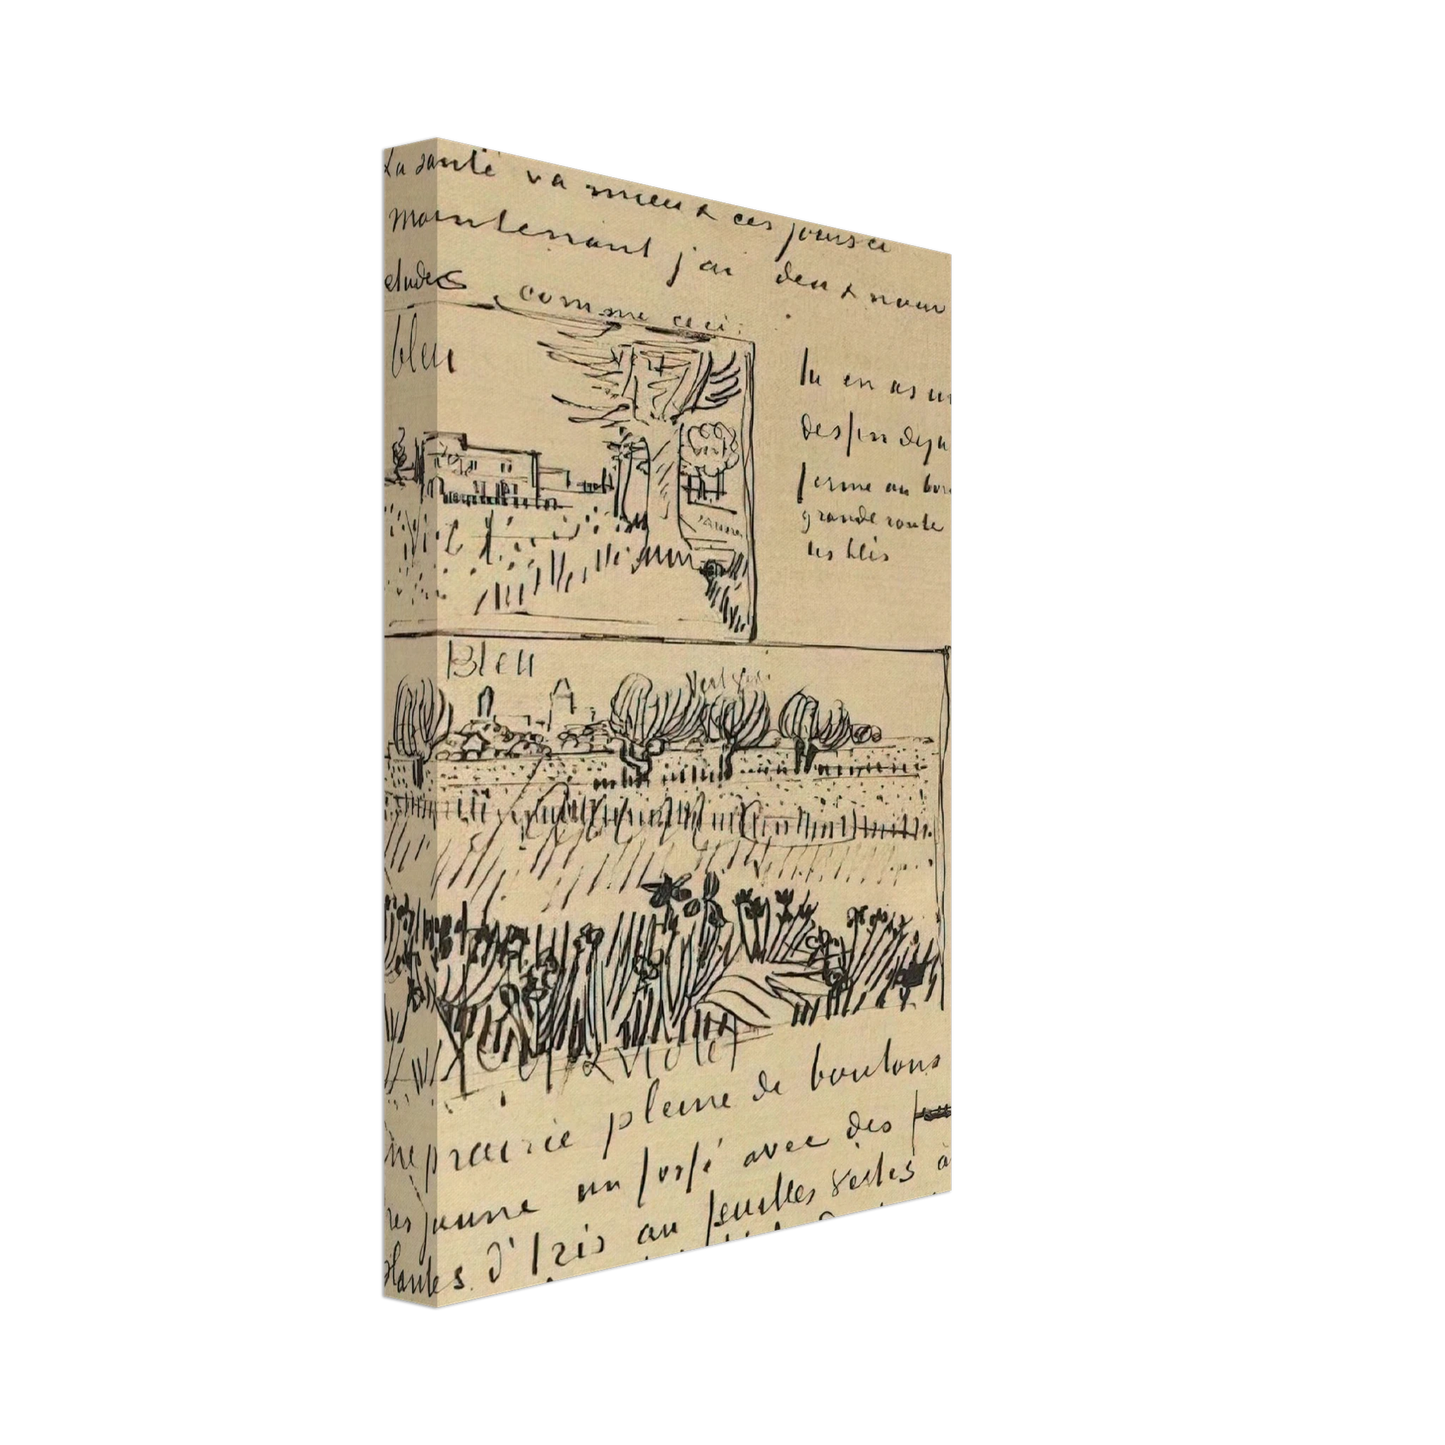 La santé va mieux ces jours ci
maintenant j'ai deux nouv
etudes comme ceci:
bleu
vert
vert
jaune
tu en as un
dessin deja
ferme au bor
grande route
les blés
Bleu
vert gris
Vert & violet
ne prairie pleine de boutons
res jaune un fossé avec des
plantes d'Iris au feuilles vertes à